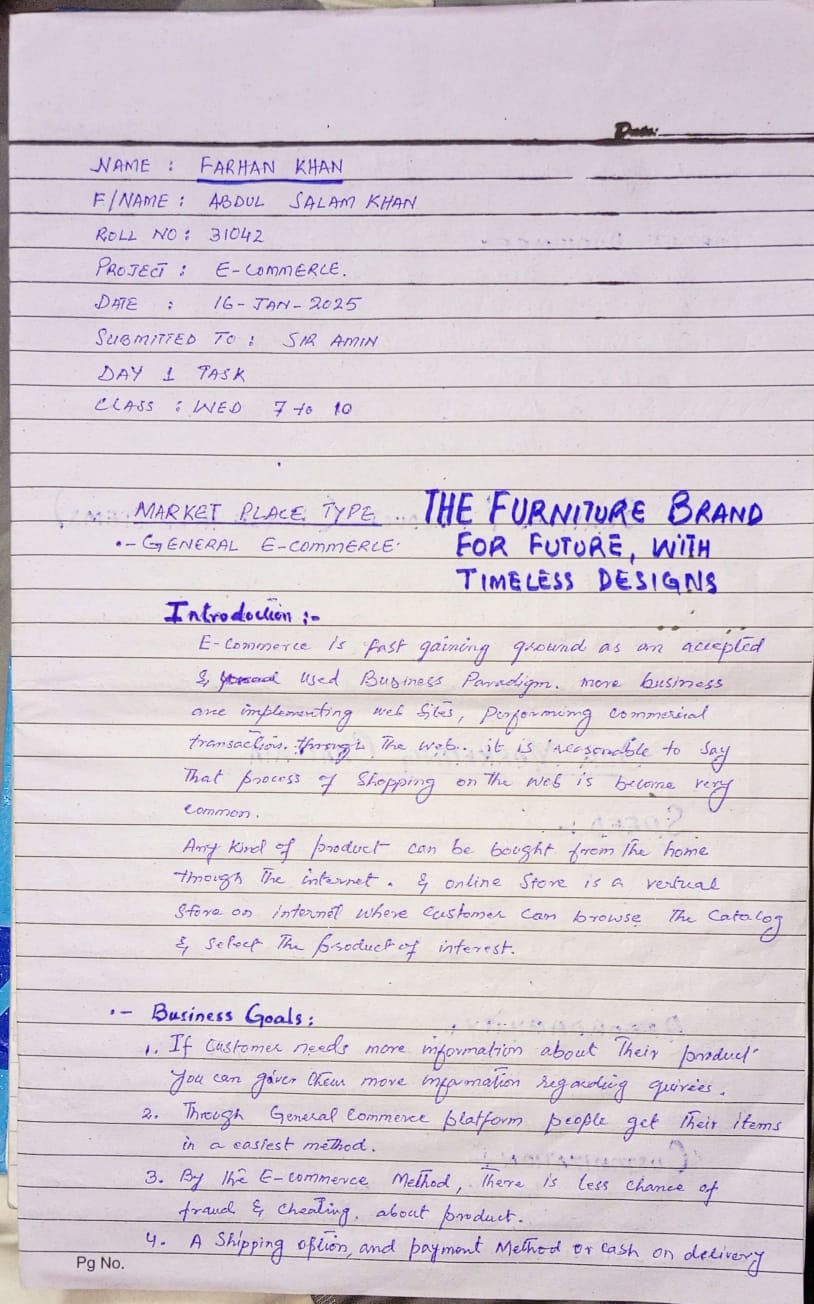 Date:
NAME : FARHAN KHAN
F/NAME : ABDUL SALAM KHAN
ROLL NO : 31042
PROJECT : E-COMMERCE.
DATE : 16-JAN-2025
SUBMITTED TO : SIR AMIN
DAY 1 TASK
CLASS : WED 7 to 10
MARKET PLACE TYPE .. THE FURNITURE BRAND
•- GENERAL E-COMMERCE FOR FUTURE, WITH
TIMELESS DESIGNS
Introduction :-
E-Commerce is fast gaining ground as an accepted
& used Business Paradigm. more business
are implementing web sites, performing commercial
transaction. through The web.. it is reasonable to say
That process of Shopping on The web is become very
common.
Any kind of product can be bought from The home
through The internet. & online Store is a vertual
Store on internet where customer can browse The Catalog
& select The product of interest.
•- Business Goals:
1. If Customer needs more information about Their product
You can giver them more information regarding quiries.
2. Through General Commerce platform people get Their items
in a easiest method.
3. By the E-commerce Method, There is less chance of
fraud & cheating, about product.
4. A Shipping option, and payment Method or cash on delivery
Pg No.